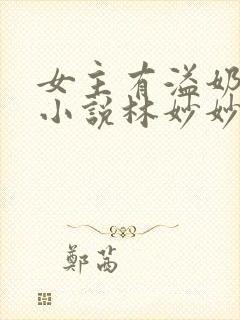 女主有溢奶
小説林妙妙
鄭茜